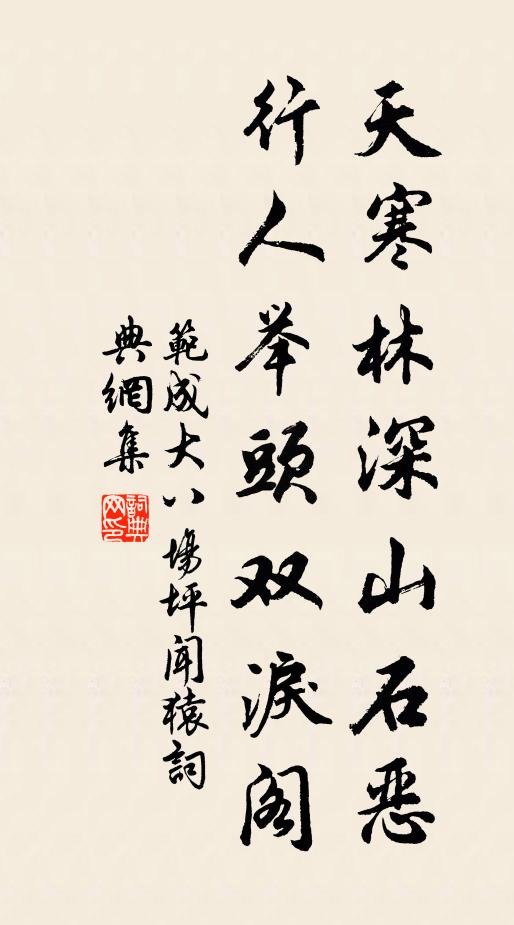 天寒林深山石恶
行人举頭双淚阁
範成大八塲坪闻猿詞
典網集
詞典网印